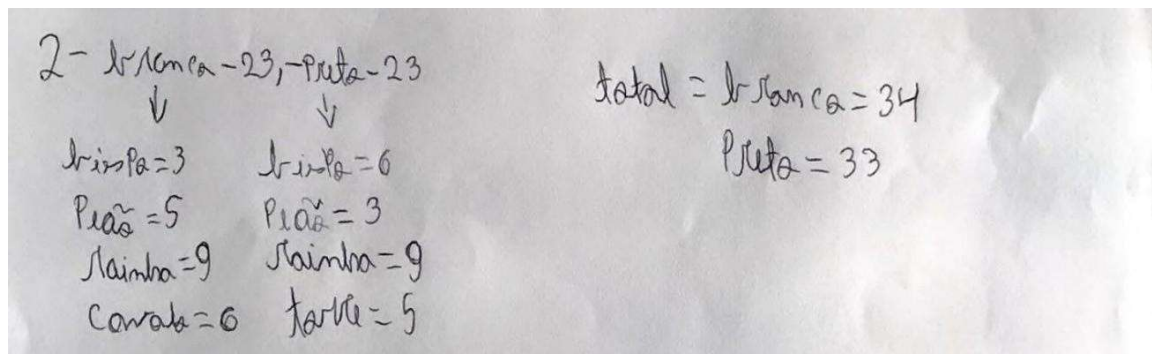 2- branca-23,-Preta-23
↓ ↓
bispo=3 bispo=6
Peão=5 Peão=3
Rainha=9 Rainha=9
Cavalo=6 torre=5
total = branca=34
Preta=33